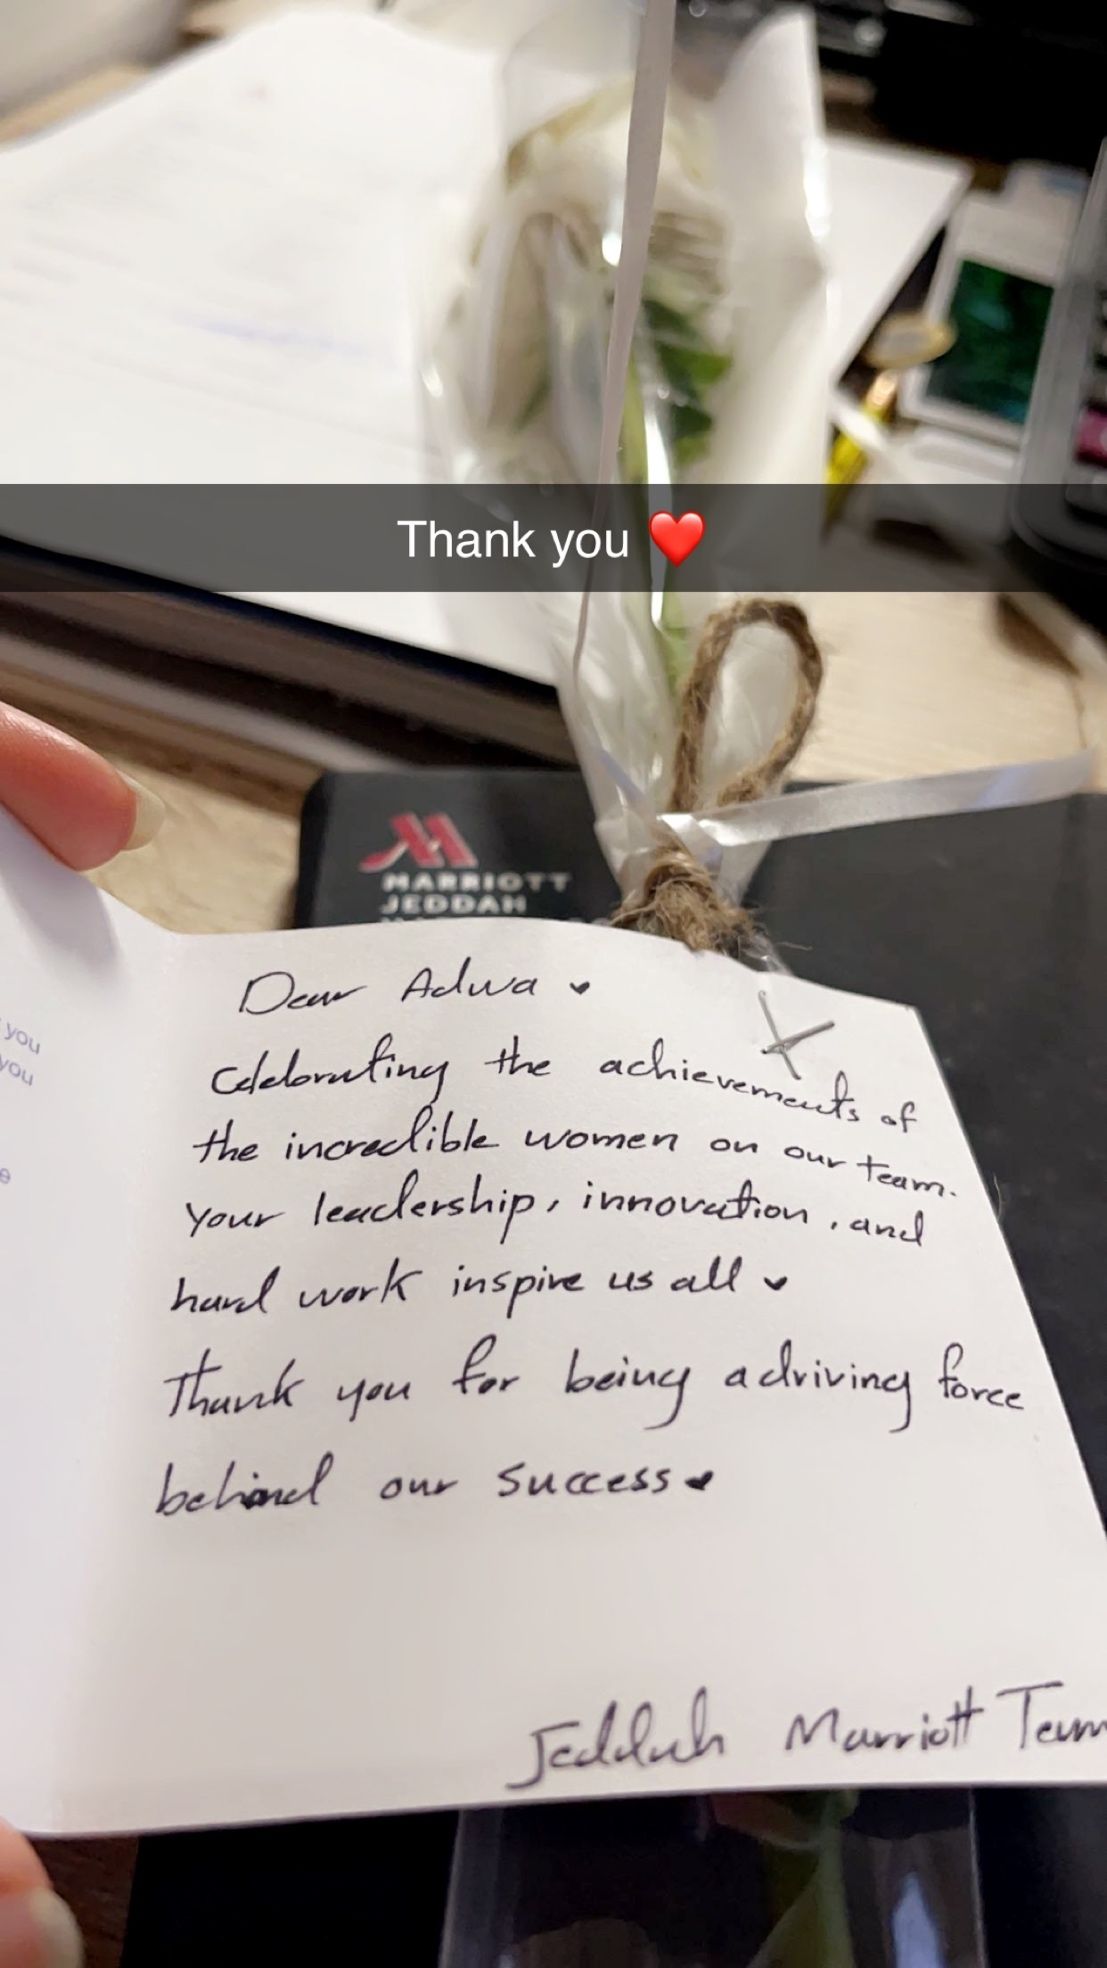 Thank you ❤️
MARRIOTT
JEDDAH
Dear Adwa ♥
Celebrating the achievements of
the incredible women on our team.
Your leadership, innovation, and
hard work inspire us all ♥
Thank you for being a driving force
behind our success ♥
Jeddah Marriott Team
you
you
e